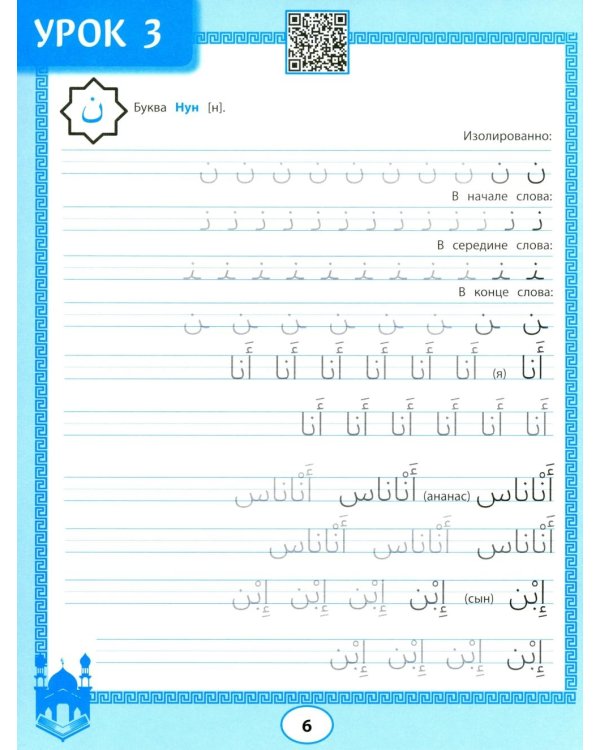 УРОК 3
ن Буква Нун [н].
Изолированно:
ن ن ن ن ن ن ن ن ن ن
В начале слова:
نـ نـ نـ نـ نـ نـ نـ نـ نـ نـ نـ نـ نـ
В середине слова:
ـنـ ـنـ ـنـ ـنـ ـنـ ـنـ ـنـ ـنـ ـنـ ـنـ ـنـ
В конце слова:
ـن ـن ـن ـن ـن ـن ـن ـن
أَنا (я) أَنا أَنا أَنا أَنا أَنا أَنا
أَنا أَنا أَنا أَنا أَنا أَنا
أَنْاناس (ананас) أَنْاناس أَنْاناس
أَنْاناس أَنْاناس أَنْاناس
إِبْن (сын) إِبْن إِبْن إِبْن إِبْن
إِبْن إِبْن إِبْن إِبْن
6